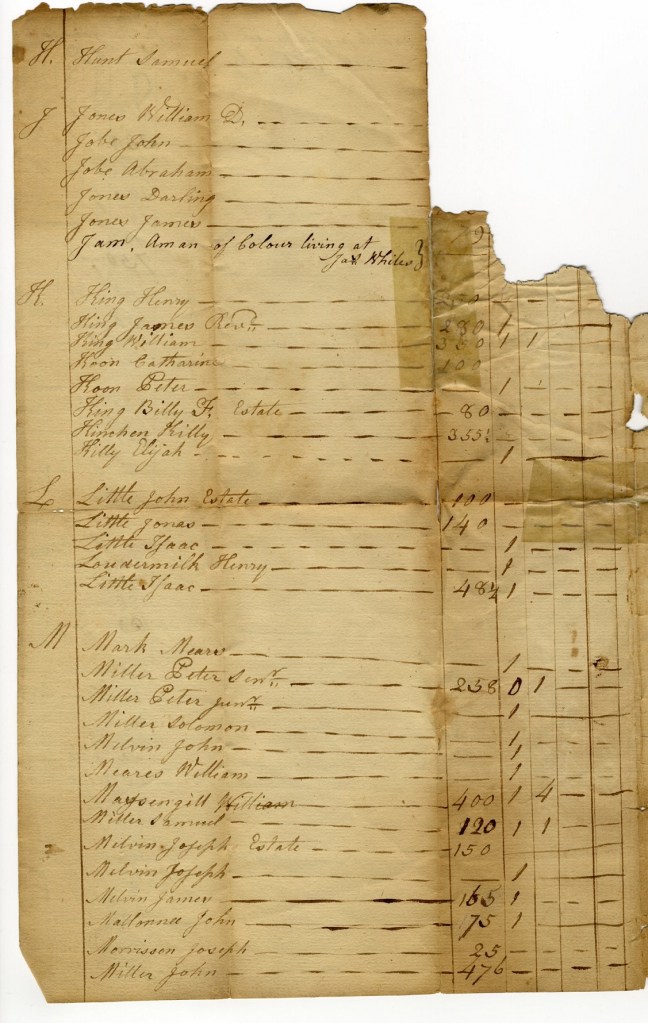 H. Hunt Samuel
J Jones William D.
Jobe John
Jobe Abraham
Jones Darling
Jones James
Jam. Aman of Colour living at
Jas Whites } 9
K. King Henry
King James Revd. 280 1
King William 350 1 1
Koon Catharine 100
Koon Peter 1
King Billy F. Estate 80
Hinchen Killy 355½
Killy Elijah 1
L Little John Estate 100
Little Jonas 140
Little Isaac 1
Loudermilk Henry 1
Little Isaac 484 1
M Mark Mears 1
Miller Peter Senr. 258 0 1
Miller Peter junr. 1
Miller Solomon
Melvin John 1
Meares William 1
Massengill William 400 1 4
Miller Samuel 120 1 1
Melvin Joseph Estate 150
Melvin Joseph 1
Melvin James 165 1
John 175 1
Morrisson Joseph 25
Miller John 476